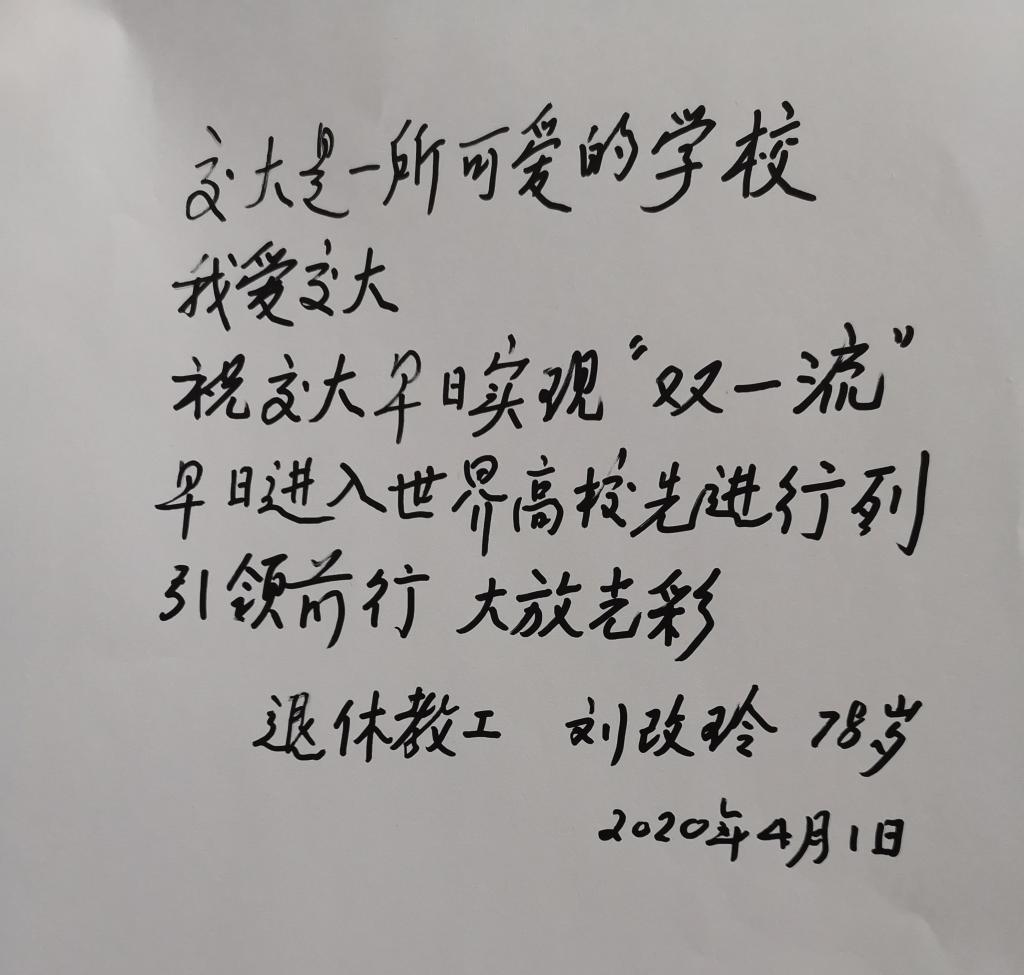 交大是一所可爱的学校
我爱交大
祝交大早日实现“双一流”
早日进入世界高校先进行列
引领前行 大放光彩
退休教工 刘改玲 78岁
2020年4月1日